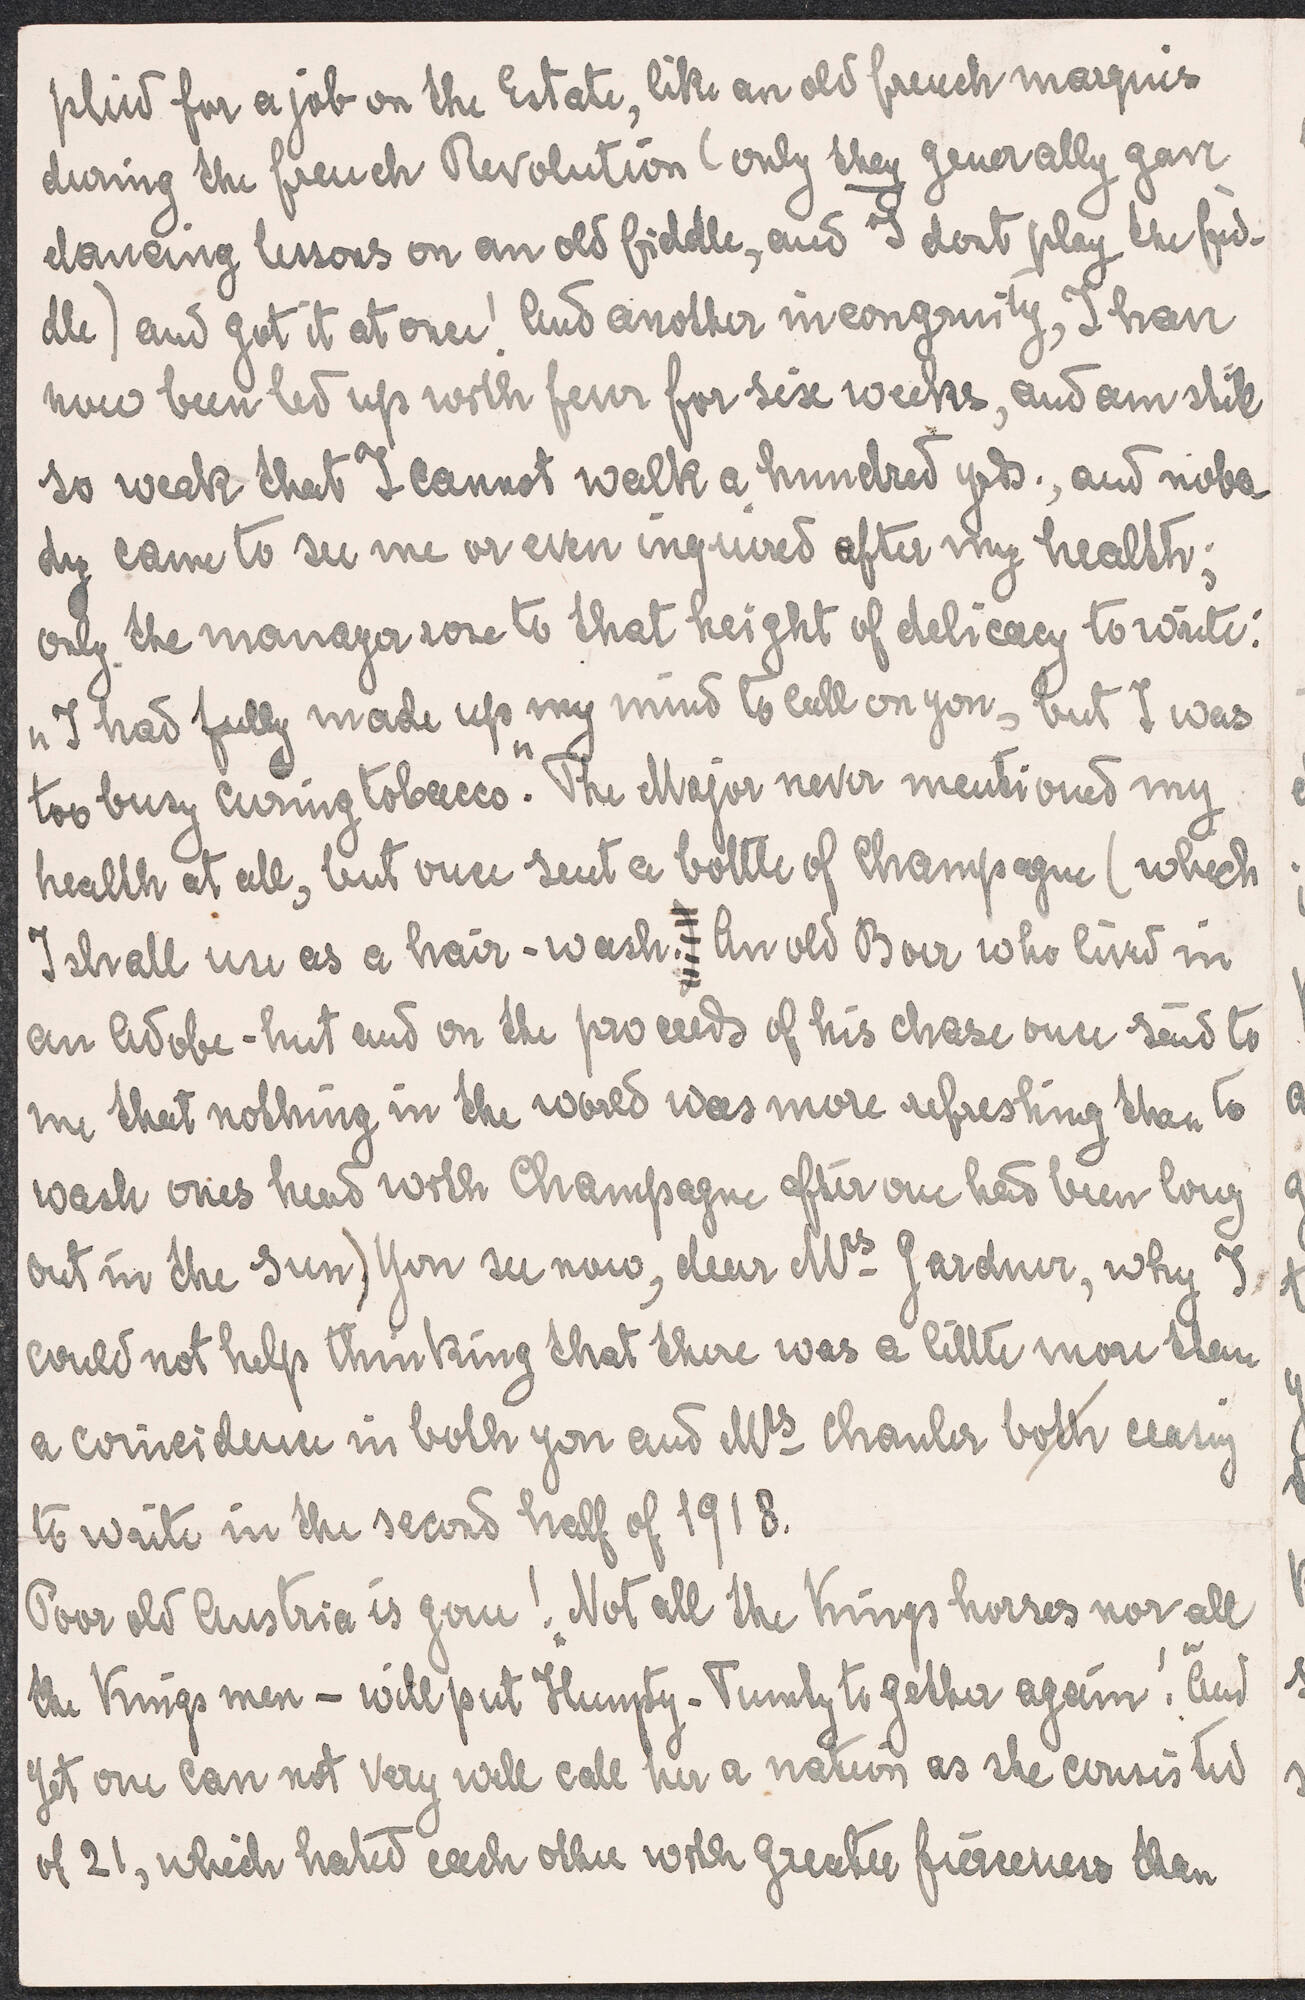 plied for a job on the Estate, like an old french marquis
during the french Revolution (only they generally gave
dancing lessons on an old fiddle, and I dont play the fid-
dle) and got it at once! And another incongruity, I have
now been laid up with fever for six weeks, and am still
so weak that I cannot walk a hundred yds., and nobo
dy came to see me or even inquired after my health;
only the manager rose to that height of delicacy to write:
„I had fully made up my mind to call on you, but I was
too busy curing tobacco". The Major never mentioned my
health at all, but once sent a bottle of Champagne (which
I shall use as a hair-wash. An old Boer who lived in
an Adobe-hut and on the proceeds of his chase once said to
me that nothing in the world was more refreshing than to
wash ones head with Champagne after one had been long
out in the sun) You see now, dear Mrs Gardner, why I
could not help thinking that there was a little more than
a coincidence in both you and Mrs Chanler both ceasing
to write in the second half of 1918.
Poor old Austria is gone! „Not all the Kings horses nor all
the Kings men – will put Humpty-Tumty together again!" And
yet one can not very well call her a nation as she consisted
of 21, which hated each other with greater fierceness than